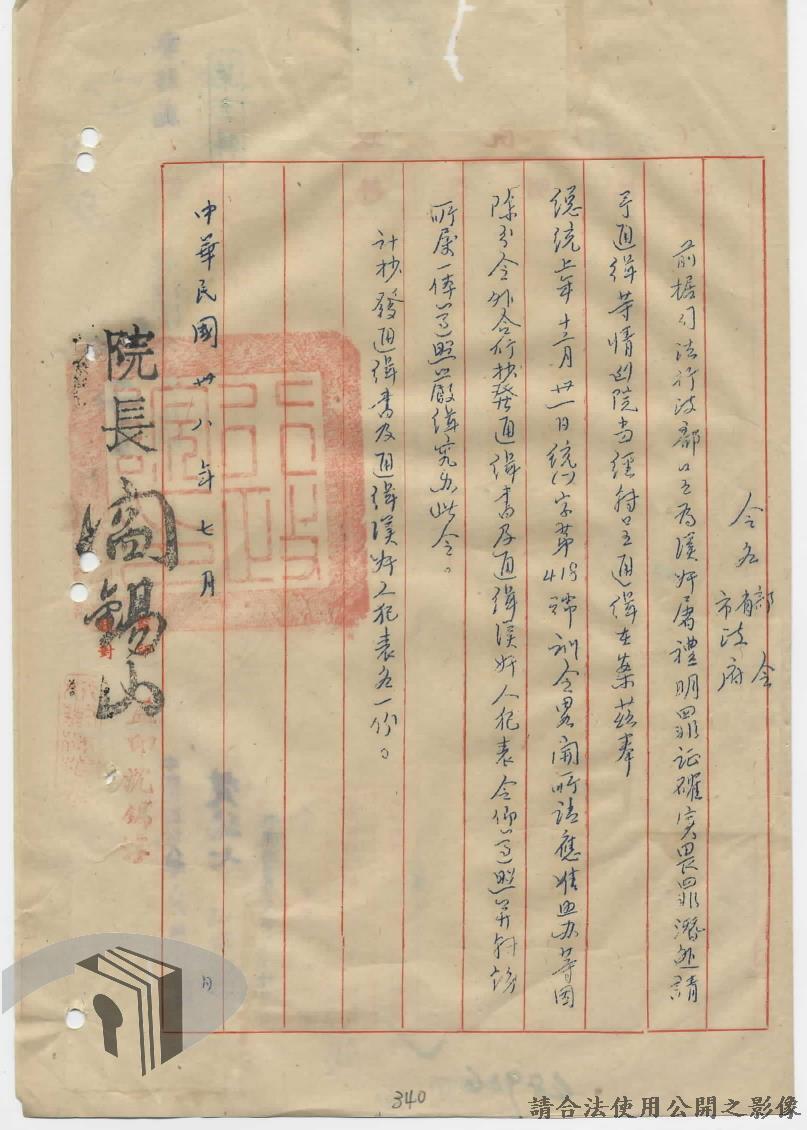 令各
部會
省
市政府
前据司法行政部呈為漢奸屠禮明罪証確实畏罪潛逃請
予通緝等情到院當經轉呈通緝在案茲奉
總統上年十二月廿一日統(一)字第418號訓令畧開所請應准照办等因
除分令外合行抄發通緝書及通緝漢奸人犯表令仰遵照并轉飭
所屬一体遵照嚴緝究办此令。
計抄發通緝書及通緝漢奸人犯表各一份。
中華民國卅八年七月
日
院長閻錫山
340
請合法使用公開之影像